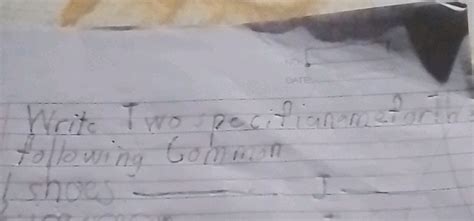 DATE
Write Two specifianameforth
following Common
shoes